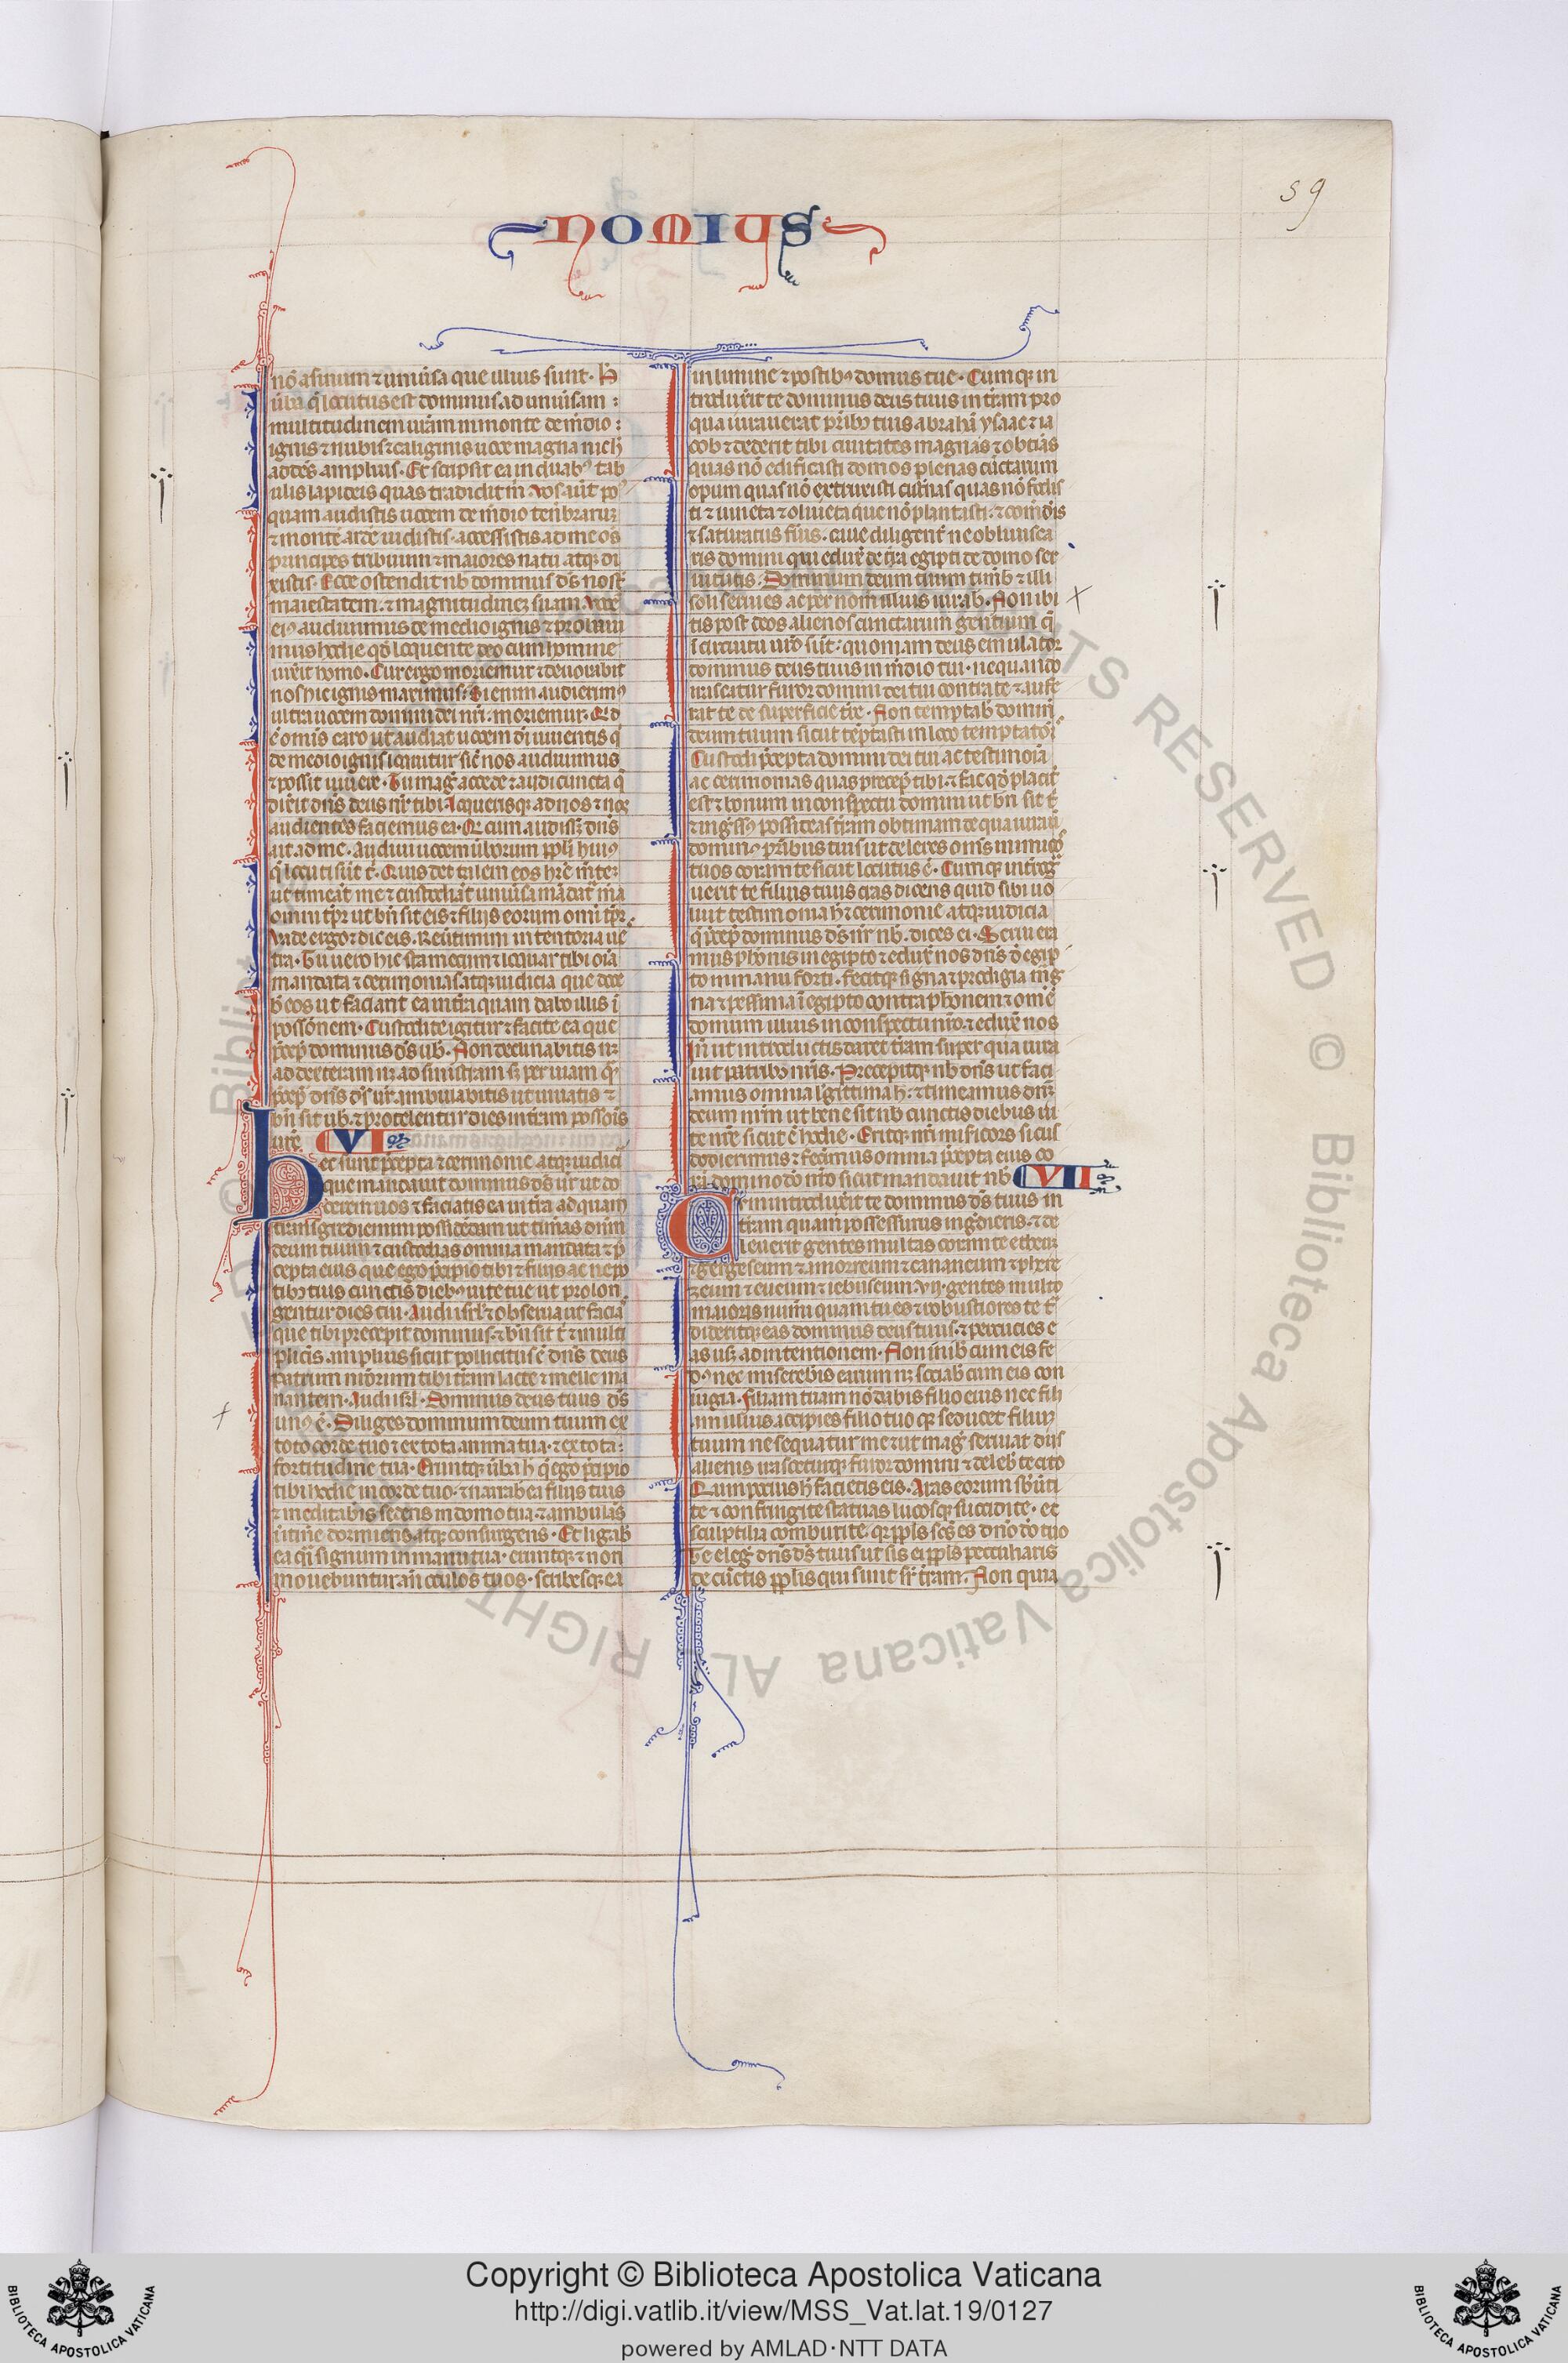 59
NOMIUS
nō asinum ⁊ uniūsa que illius sunt. H̄
ūba q̄ locutus est dominus ad uniūsam
multitudinem urām in monte de m̄dio
ignis ⁊ nubis ⁊ caliginis uoce magna nich̄
addēs amplius. Et scripsit ea in duabꝰ tab
ulis lapideis quas tradidit m̄. Vos aūt pꝰ
quam audistis uocem de mēdio tenēbrarum
⁊ monte ardē uidistis. accessistis ad me oēs
principes tribuum ⁊ maiores natu atqꝫ di
xistis. Ecce ostendit nb̄ dominus dēs nost̄
maiestatem ⁊ magnitudinē suam. Vocē
eiꝰ audiuimus de medio ignis ⁊ probaui
mus hodie qd̄ loquente deo cum homine
uixerit homo. Cur ergo moriemur ⁊ deuorabit
nos hic ignis maximus. Si enim audierimꝰ
ultra uocem domini dei nr̄i. moriemur. Qd̄
ē omīs caro ut audiat uocem dī uiuentis q̄
de medio ignis loquitur sic̄ nos audiuimus
⁊ possit uiuere. Tu maḡ accede ⁊ audi cuncta q̄
dixit dn̄s deus nr̄ tibi. loquerisqꝫ ad nos ⁊ nos
audientes faciemus ea. Qd̄ cum audisset dn̄s
ait ad me. Audiui uocem ūborum ppl̄i huiꝰ
q̄ locuti sūt t̄. Quis det talem eos hr̄e mēte
ut timeāt me ⁊ custodiāt uniūsa mādata mēa
omni tp̄r ut bn̄ sit eis ⁊ filiis eorum omī tp̄r.
Vade ergo ⁊ dic eis. Reūtimini in tentoria ue
stra. Tu uero hic sta mecum ⁊ loquar tibi oīa
mandata ⁊ cerimonias atqꝫ iudicia que doce
b̄ eos ut faciant ea in trā quam dabo illis ī
possōnem. Custodite igitur ⁊ facite ea que
p̄cep̄ dominus dēs ub̄. Non declinabitis nꝫ
ad dexteram nꝫ ad sinistram sꝫ per uiam q̄
p̄cep̄ dn̄s dēs ur̄ ambulabitis ut uiuatis ⁊
bn̄ sit ub̄. ⁊ protelentur dies in trām possōis
ure. VI
Hec sunt p̄cepta ⁊ cerimonie atqꝫ iudicia
que mandauit dominus dēs ur̄ ut do
cerem uos ⁊ faciatis ea in trā ad quam
transgredimini possidēdam ut timeas dnm̄
deum tuum ⁊ custodias omnia mandata ⁊ p̄
cepta eius que ego p̄cipio tibi ⁊ filiis ac nepo
tibꝫ tuis cunctis diebꝰ uite tue ut prolon
gentur dies tui. Audi isrl̄ ⁊ obserua ut facia
que tibi precepit dominus. ⁊ bn̄ sit t̄ ⁊ multi
pliceris amplius sicut pollicitus ē dn̄s deus
patrum tuorum tibi trām lacte ⁊ melle ma
nantem. Audi isrl̄. Dominus deus tuus dēs
unꝰ ē. Diliges dominum deum tuum ex
toto corde tuo ⁊ ex tota anima tua ⁊ ex tota
fortitudine tua. Eruntqꝫ ūba h̄ q̄ ego p̄cipio
tibi hodie in corde tuo. ⁊ narrab̄ ea filiis tuis
⁊ meditab̄is sedens in domo tua ⁊ ambulās
ītine dormiens atqꝫ consurgens. Et ligab̄
ea qi̅ signum in manu tua. eruntqꝫ ⁊ non
mouebuntur an̄ oculos tuos. scribesqꝫ ea
in limine ⁊ postibꝰ domus tue. Cumqꝫ in
troduxerit te dominus deus tuus in trām pro
qua iurauerat pr̄ibꝫ tuis abrahā ysaac ⁊ ia
cob ⁊ dederit tibi ciuitates magnas ⁊ obtīas
quas nō edificasti domos plenas cūctarum
opum quas nō extruxisti cist̄nas quas nō fodis
ti ⁊ uineta ⁊ oliueta que nō plantasti. ⁊ comēdis
⁊ saturatus fūis. caue diligent̄ ne obliuisca
ris domini qui eduxit̄ de trā egipti de domo ser
uitutis. Dominum deum tuum timēb̄ ⁊ illi
soli seruies ac per nom̄ illius iurab̄. Non ibi
tis post deos alienos cunctarum gentium q̄
ī circuitu uro sūt. quoniam deus emulator
dominus deus tuus in mēdio tui. nequando
irascatur furor domini dei tui contra te ⁊ aufe
rat te de superficie tr̄e. Non temptab̄ domin̄
deum tuum sicut tēptasti in loco temptatōis
Custodi p̄cepta domini dei tui ac testimoīa
ac cerimonias quas precep̄ tibi. ⁊ fac qd̄ placit̄
est ⁊ bonum in conspectu domini ut bn̄ sit t̄
⁊ ingr̄sꝰ possideas trām obtimam de qua iurau̅
dominꝰ pr̄ibus tuis ut deleres om̄s inimicos
tuos coram te sicut locutus ē. Cumqꝫ intrōg
uerit te filius tuus cras dicens quid sibi uo
lunt testimonia h̄ ⁊ cerimonie atqꝫ iudicia
q̄ p̄cep̄ dominus dēs nr̄ nb̄. dices ei. Serui era
mus ph̄onis in egipto ⁊ eduxit̄ nos dn̄s d̄ egip
to in manu forti. fecitqꝫ signa ⁊ prodigia mag̅
na ⁊ pessima ī egipto contra ph̄onem ⁊ omē
domum illius in conspectu nr̄o. ⁊ eduxit̄ nos
in̄ ut introductis daret trām super qua iura
uit patribꝫ nris. Precepitqꝫ nb̄ dn̄s ut faci
amus omnia lḡittima h̄. ⁊ timeamus dnm̄
deum nr̄m ut bene sit nb̄ cunctis diebus ui
te nre sicut ē hodie. Eritqꝫ nr̄i misēicors si cus
todierimus ⁊ fecimus omnia p̄cepta eius co
rā domino dō nr̄o sicut mandauit nb̄. VII
Cum introduxerit te dominus dēs tuus in
trām quam possessurus ingrēdieris. ⁊ de
leuerit gentes multas coram te etheum
⁊ gergeseum ⁊ amorreum ⁊ cananeum ⁊ phere
zeum ⁊ eueum ⁊ iebuseum. vii. gentes multo
maioris numī quam tu es ⁊ robustiores te t̄
dideritqꝫ eas dominus deus tuus. ⁊ percucies e
as usqꝫ ad intentionem. Non inib̄ cum eis fe
dꝰ nec misereb̄is earum nꝫ sociab̄ cum eis con
iugia. filiam tuam nō dabis filio eius nec fili
am illius accipies filio tuo qꝫ seducet filium
tuum ne sequatur me ⁊ ut mag̅ seruiat diis
alienis irasceturqꝫ furor domini ⁊ deleb̄ te cito
Quin pocius h̄ facietis eis. Aras eorum sb̄ūti
te ⁊ confringite statuas lucosqꝫ succidite. et
sculptilia comburite. qꝫ ppl̄s scs̄ es dn̄o dō tuo
Te eleg̅ dn̄s dēs tuus ut sis ei ppl̄s peculiaris
de cūctis ppl̄is qui sunt sr̄ trām. Non quia
© Biblioteca Apostolica Vaticana ALL RIGHTS RESERVED
Copyright © Biblioteca Apostolica Vaticana
http://digi.vatlib.it/view/MSS_Vat.lat.19/0127
powered by AMLAD·NTT DATA
BIBLIOTECA APOSTOLICA VATICANA
BIBLIOTECA APOSTOLICA VATICANA